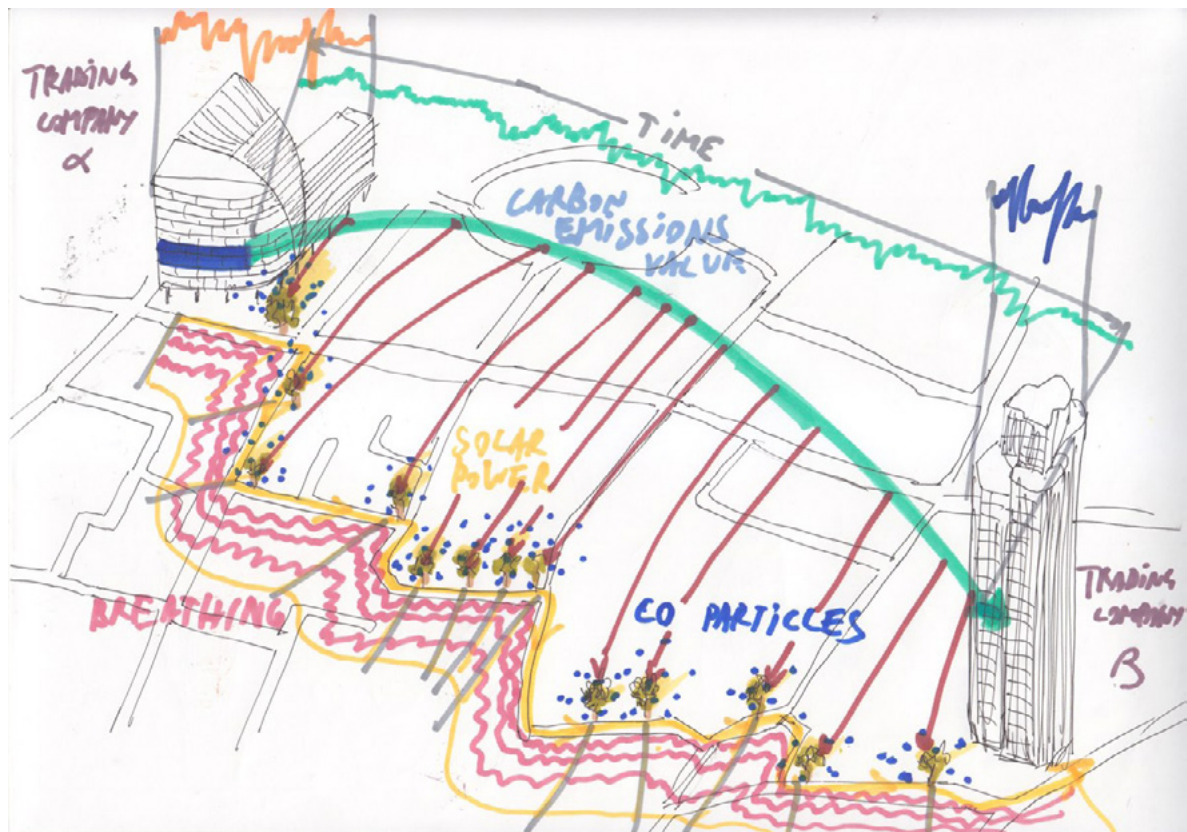 TRADING
COMPANY
α
TIME
CARBON
EMISSIONS
VALUE
SOLAR
POWER
BREATHING
CO PARTICLES
TRADING
COMPANY
β